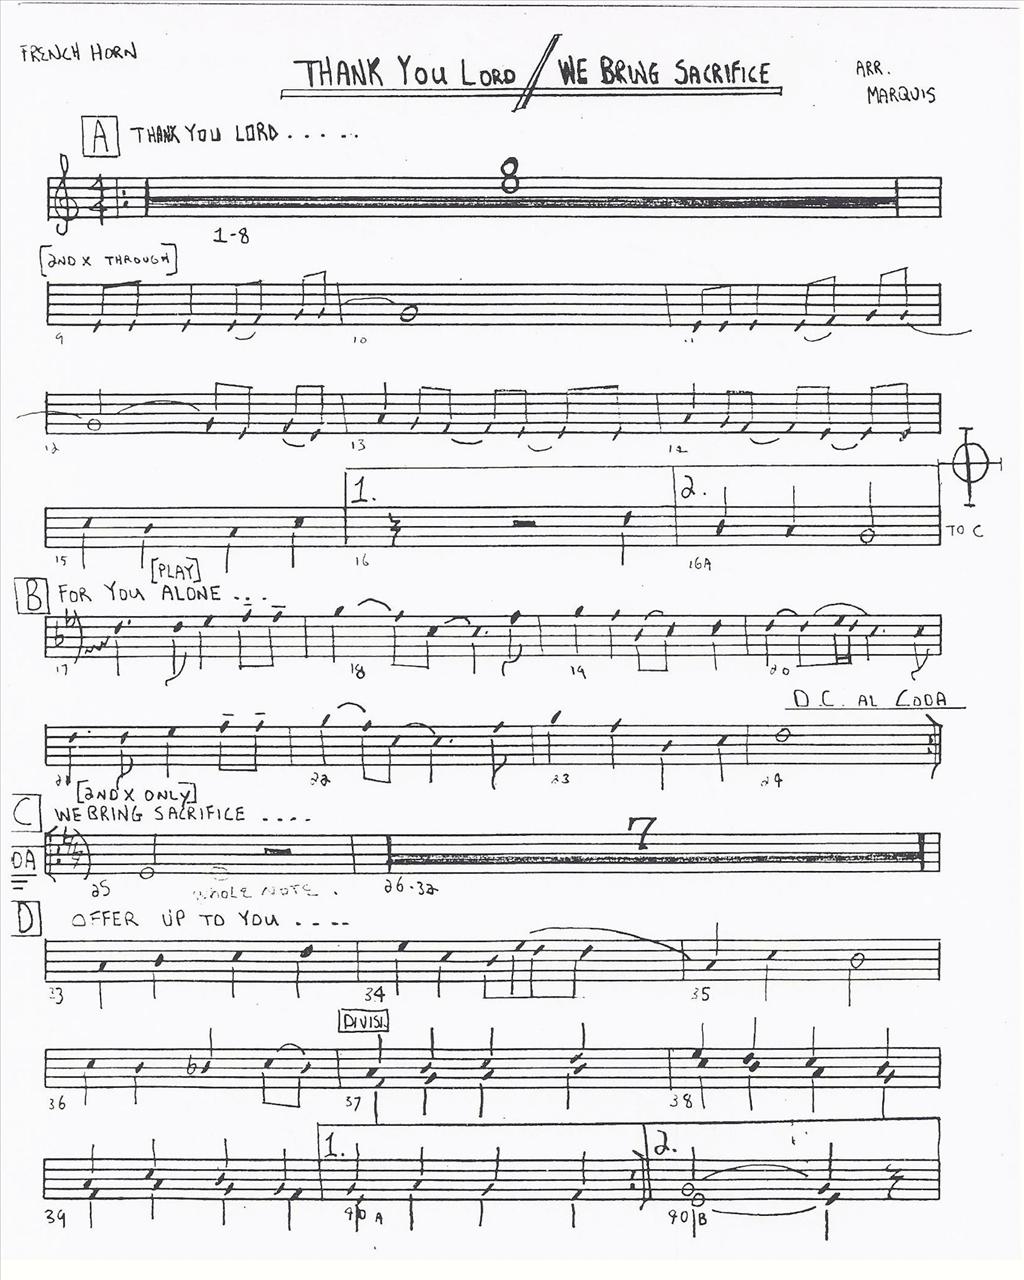 FRENCH HORN
THANK YOU LORD / WE BRING SACRIFICE
ARR. MARQUIS
A THANK YOU LORD . . . . .
8
1-8
[2ND X THROUGH]
9 10 11
12 13 14
1. 2.
15 16 16A TO C
[PLAY]
B FOR YOU ALONE . . .
17 18 19 20
D.C. AL CODA
21 22 23 24
[2ND X ONLY]
C WE BRING SACRIFICE . . . .
7
DA
25 WHOLE NOTE . 26-32
D OFFER UP TO YOU . . . .
33 34 35
DIVISI
36 37 38
1. 2.
39 40 A 40 B